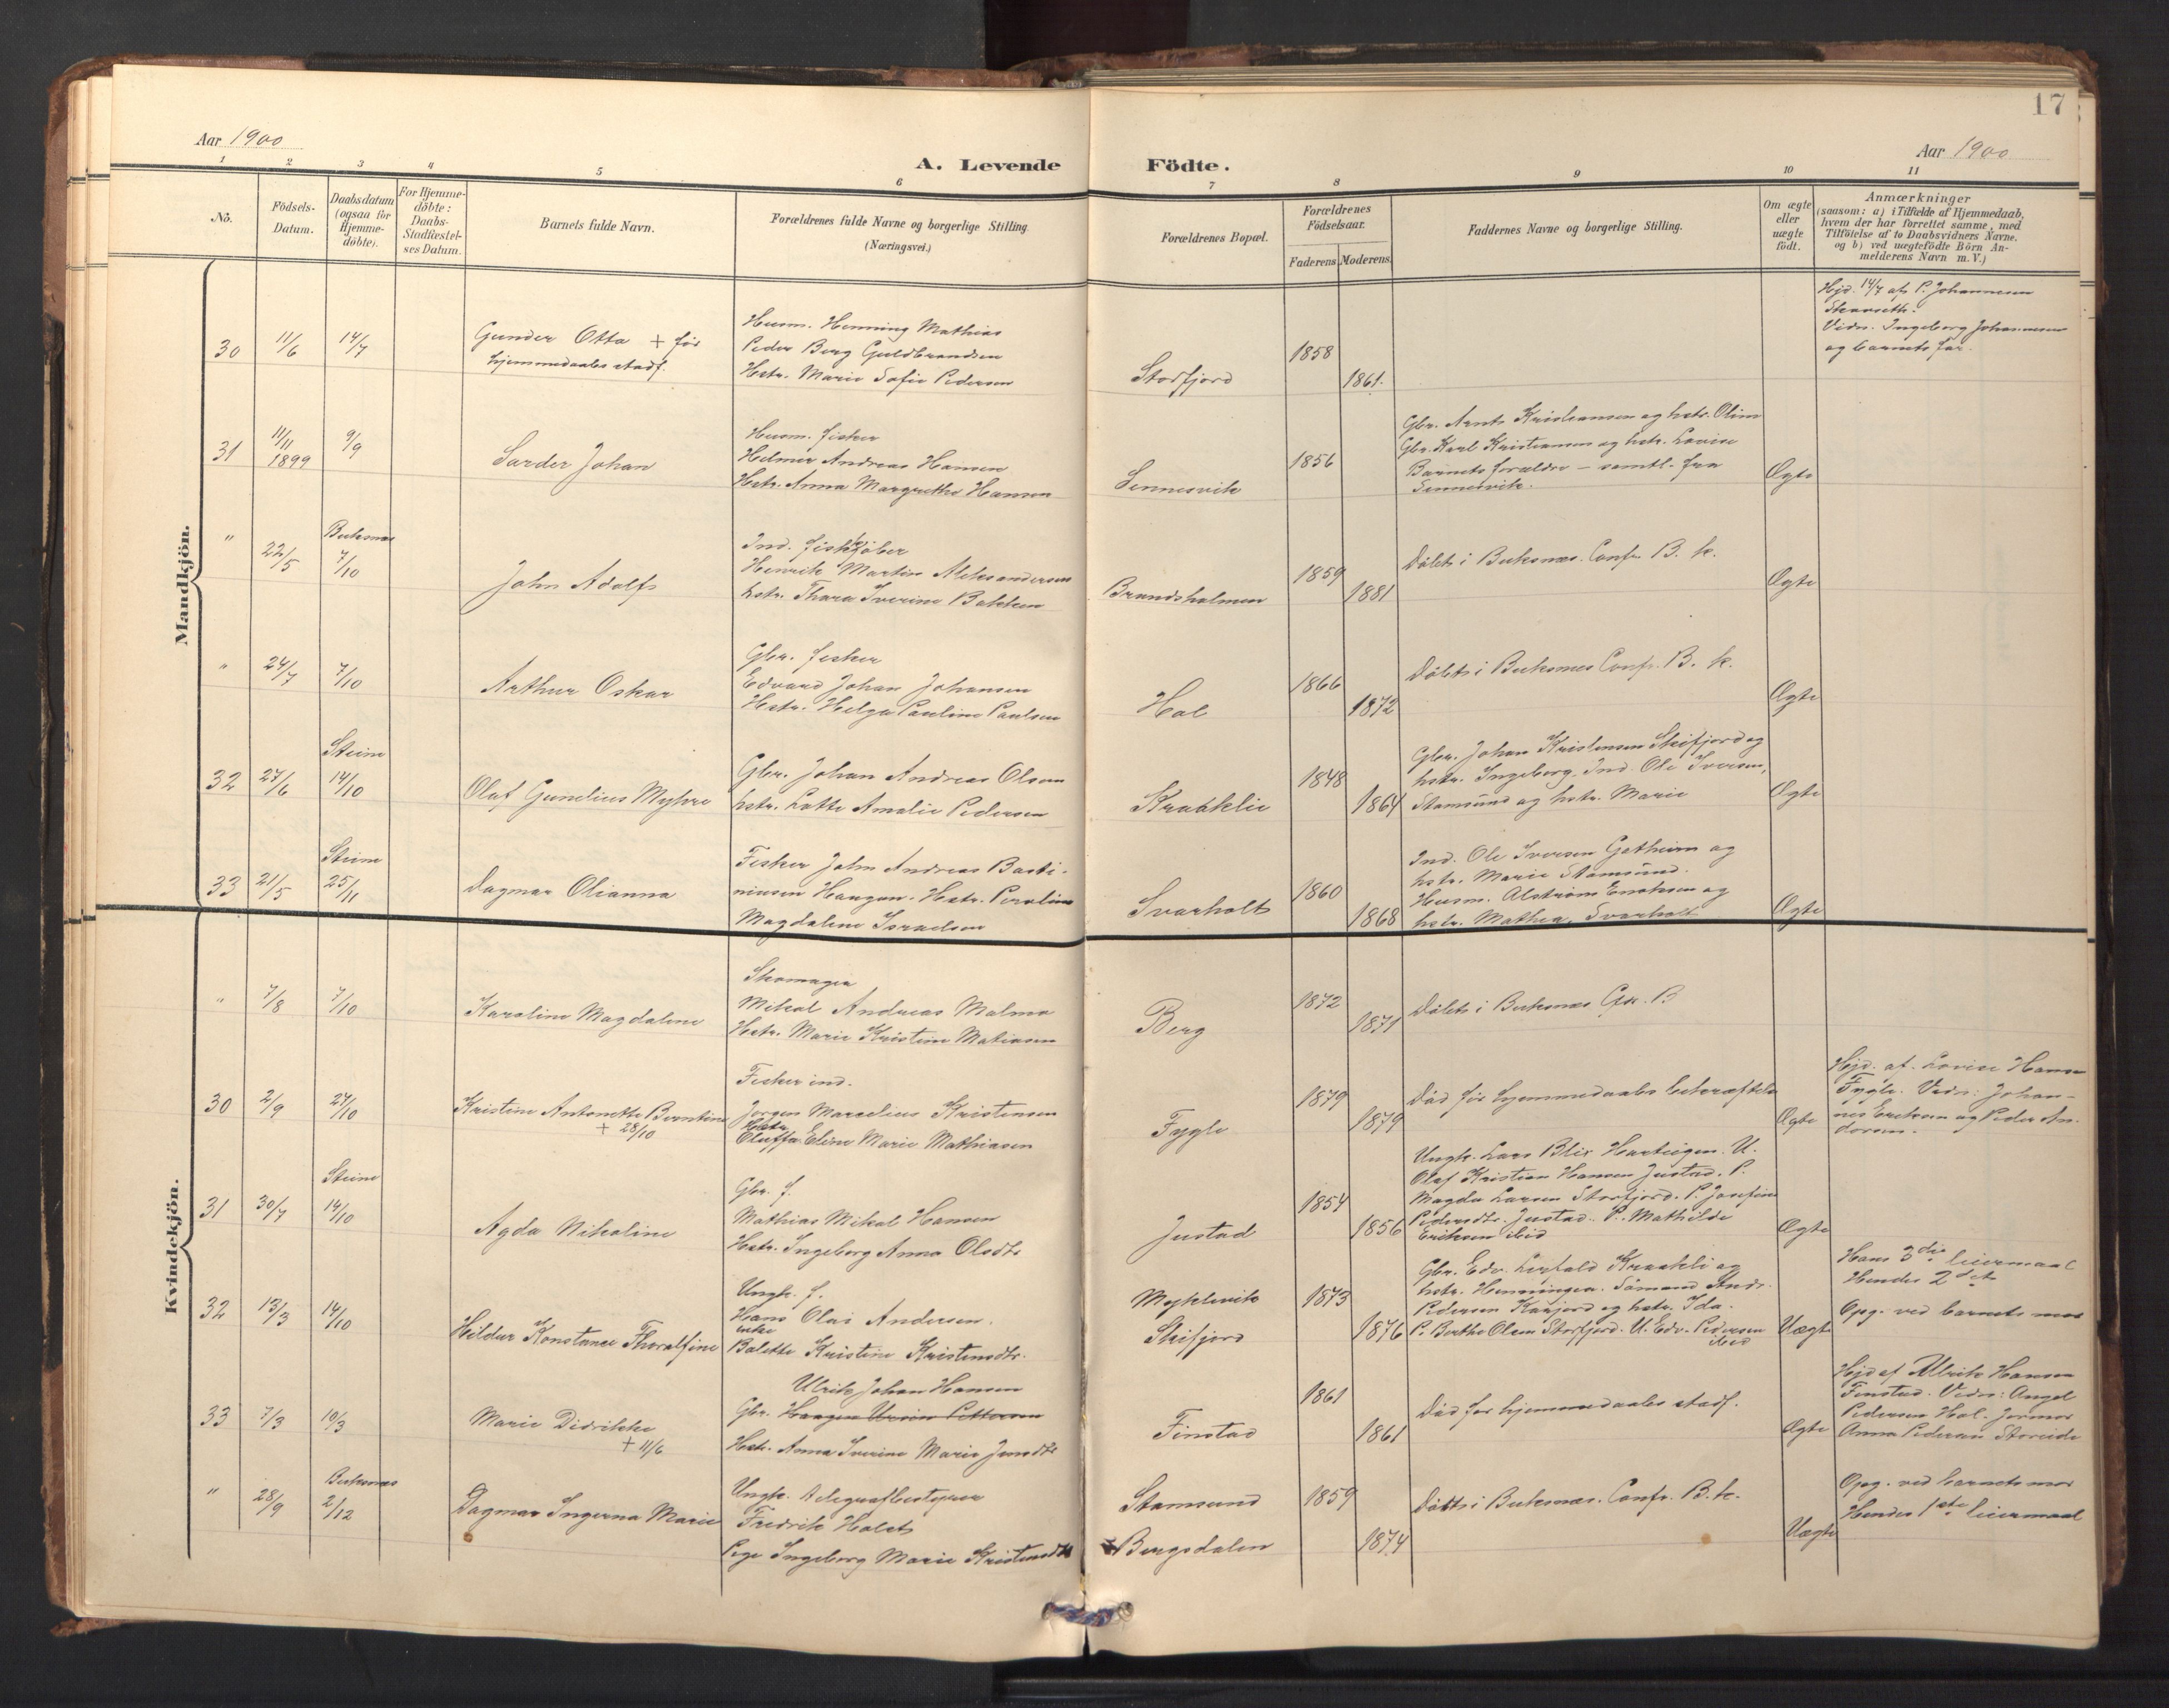 17
Aar 1900
A. Levende Födte.
Aar 1900
1 2 3 4 5 6 7 8 9 10 11
No.
Födsels-
Datum.
Daabsdatum
(ogsaa for
Hjemme-
döbte).
For Hjemme-
döbte:
Daabs-
Stadfæstel-
ses Datum.
Barnets fulde Navn.
Forældrenes fulde Navne og borgerlige Stilling
(Næringsvei.)
Forældrenes Bopæl.
Forældrenes
Födselsaar.
Faderens Moderens
Faddernes Navne og borgerlige Stilling.
Om ægte
eller
uægte
födt.
Anmærkninger
(saasom: a) i Tilfælde af Hjemmedaab,
hvem der har forrettet samme, med
Tilföielse af to Daabsvidners Navne,
og b) ved uægtefödte Börn An-
melderens Navn m. V.)
Mandkjön.
30 11/6 14/7
Gunder Otta + før
hjemmedaabes stadf.
Husm. Henning Mathias
Peder Berg Guldbrandsen
Hstr. Marie Sofie Pedersen
Storfjord
1858
1861.
Hjd. 14/7 af P. Johannesen
Vidn. Ingeborg Johannesen
og barnets far.
31 11/11 1899 9/9
Sarder Johan
Husm. fisker
Helmer Andreas Hansen
Hstr. Anna Margrethe Hansen
Sennesvik
1856
Gbr. Arnt Kristiansen og hstr. Oline
Gbr. Karl Kristiansen og hstr. Lovise
Barnets forældre – samtl. fra
Sennesvik.
Ægte
" 22/5
Buksnes
7/10
John Adolf
Ind. fiskekjøber
Henrik Martin Aleksandersen
hstr. Thora Iverine Bakken
Brandsholmen
1859
1881
Døbt i Buksnes. Confr. B. k.
Ægte
" 24/7 7/10
Arthur Oskar
Gbr. fisker
Edvard Johan Johansen
Hstr. Helga Pauline Paulsen
Hol
1866
1872
Døbt i Buksnes Confr. B. k.
Ægte
32 27/6
Steine
14/10
Olaf Gundius Myhre
Gbr. Johan Andreas Olsen
hstr. Lotte Amalie Pedersen
Kraaklie
1848
1864
Gbr. Johan Kristensen Skifjord og
hstr. Ingeborg. Ind. Ole Iversen,
Stamsund og hstr. Marie
Ægte
33 21/5
Steine
25/11
Dagmar Olianna
Fisker John Andreas Basti-
niusen Haugan. Hstr. Peroline
Magdalene Israelsen
Svarholt
1860
1868
Ind. Ole Iversen Getheim og
hstr. Marie Stamsund.
Husm. Alstrøm Enoksen og
hstr. Mathea, Svarholt
Ægte
Kvindekjön.
" 7/8 7/10
Karoline Magdalene
Skomager
Mikal Andreas Malmo
Hstr. Marie Kristine Matiasen
Berg
1872
1871
Døbt i Buksnes Cfr. B
30 2/9 27/10
Kristine Antonette Berntine
+ 28/10
Fisker ind.
Jørgen Marselius Kristensen
Hstr.
Oluffa Eline Marie Mathiasen
Fygle
1879
1879
Død før hjemmedaabs bekræftelse
Ægte
Hjd. af. Lovise Hansen
Fygle. Vidn: Johan-
nes Eriksen og Peder An-
dersen.
31 30/7
Steine
14/10
Agda Nikoline
Gbr. f.
Mathias Mikal Hansen
Hstr. Ingeborg Anna Olsdtr
Justad
1854
1856
Ungk. Lars Blix Hartvigsen. U.
Olaf Kristian Hansen Justad. P.
Magda Larsen Storfjord. P. Josefine
Pedersdtr. Justad. P. Mathilde
Eriksen ibid
Ægte
32 13/3 14/10
Hildur Konstance Thoralfine
Ungk. f.
Hans Olai Andersen.
enke
Bolette Kristine Kristensdtr.
Myklevik
Skifjord
1873
1876
Gbr. Edv. Liufald Kraakli og
hstr. Henningea. Sømand Andr.
Pedersen Kanjord og hstr. Ida.
P. Berthe Olsen Storfjord. U. Edv. Pedersen
ibid
Uægte
Hans 3die leiermaal
Hendes 2det
Opg. ved barnets mor
33 7/3 10/3
Marie Didrikke
+ 11/6
Ulrik Johan Hansen
Gbr. Haagen Ursin Pettersen
Hstr. Anna Iverine Marie Jensdtr
Finstad
1861
1861
Død før hjemmedaabes stadf.
Ægte
Hjd af Ulrik Hansen
Finstad. Vidn: Angel
Pedersen Hol. Jormor
Anna Pedersen Storeide
" 28/9
Buksnes
2/12
Dagmar Ingerna Marie
Ungk. telegrafbestyrer
Fredrik Holst
Pige Ingeborg Marie Kristensdtr
Stamsund
Bergsdalen
1859
1874
Døbt i Buksnes. Confr. B. k.
Uægte
Opg. ved barnets mor
Hendes 1ste leiermaal